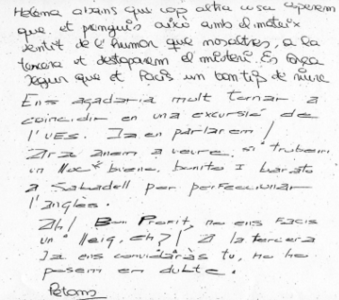 Helena abans que cap altra cosa esperem
que et prenguis això amb el mateix
sentit de l'humor que nosaltres, a la
tercera et destaparem el misteri. Es força
segur que et facis un bon tip de riure
Ens agadaria molt tornar a
coincidir en una excursió de
l'UES. Ja en parlarem!
Ara anem a veure si trubem
un "Mac" bueno, bonito I barato
a Sabadell per perfeccionar
l'anglès.
Ah! Bon Profit, no ens facis
un lleig, eh?! A la tercera
Ja ens convidaràs tu, no ho
posem en dubte.
Petons